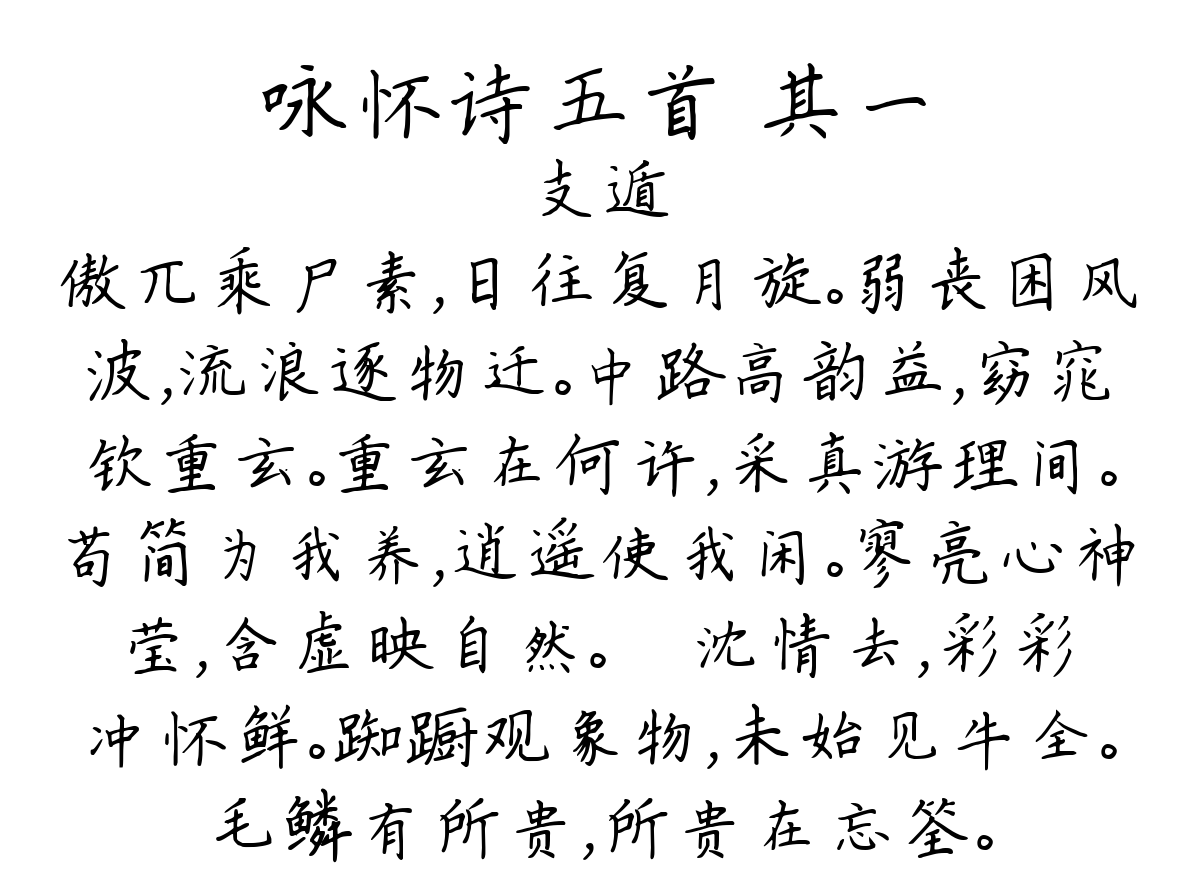 咏怀诗五首 其一
支遁
傲兀乘尸素,日往复月旋。弱丧困风
波,流浪逐物迁。中路高韵益,窈窕
钦重玄。重玄在何许,采真游理间。
苟简为我养,逍遥使我闲。寥亮心神
莹,含虚映自然。 沈情去,彩彩
冲怀鲜。踟蹰观象物,未始见牛全。
毛鳞有所贵,所贵在忘筌。